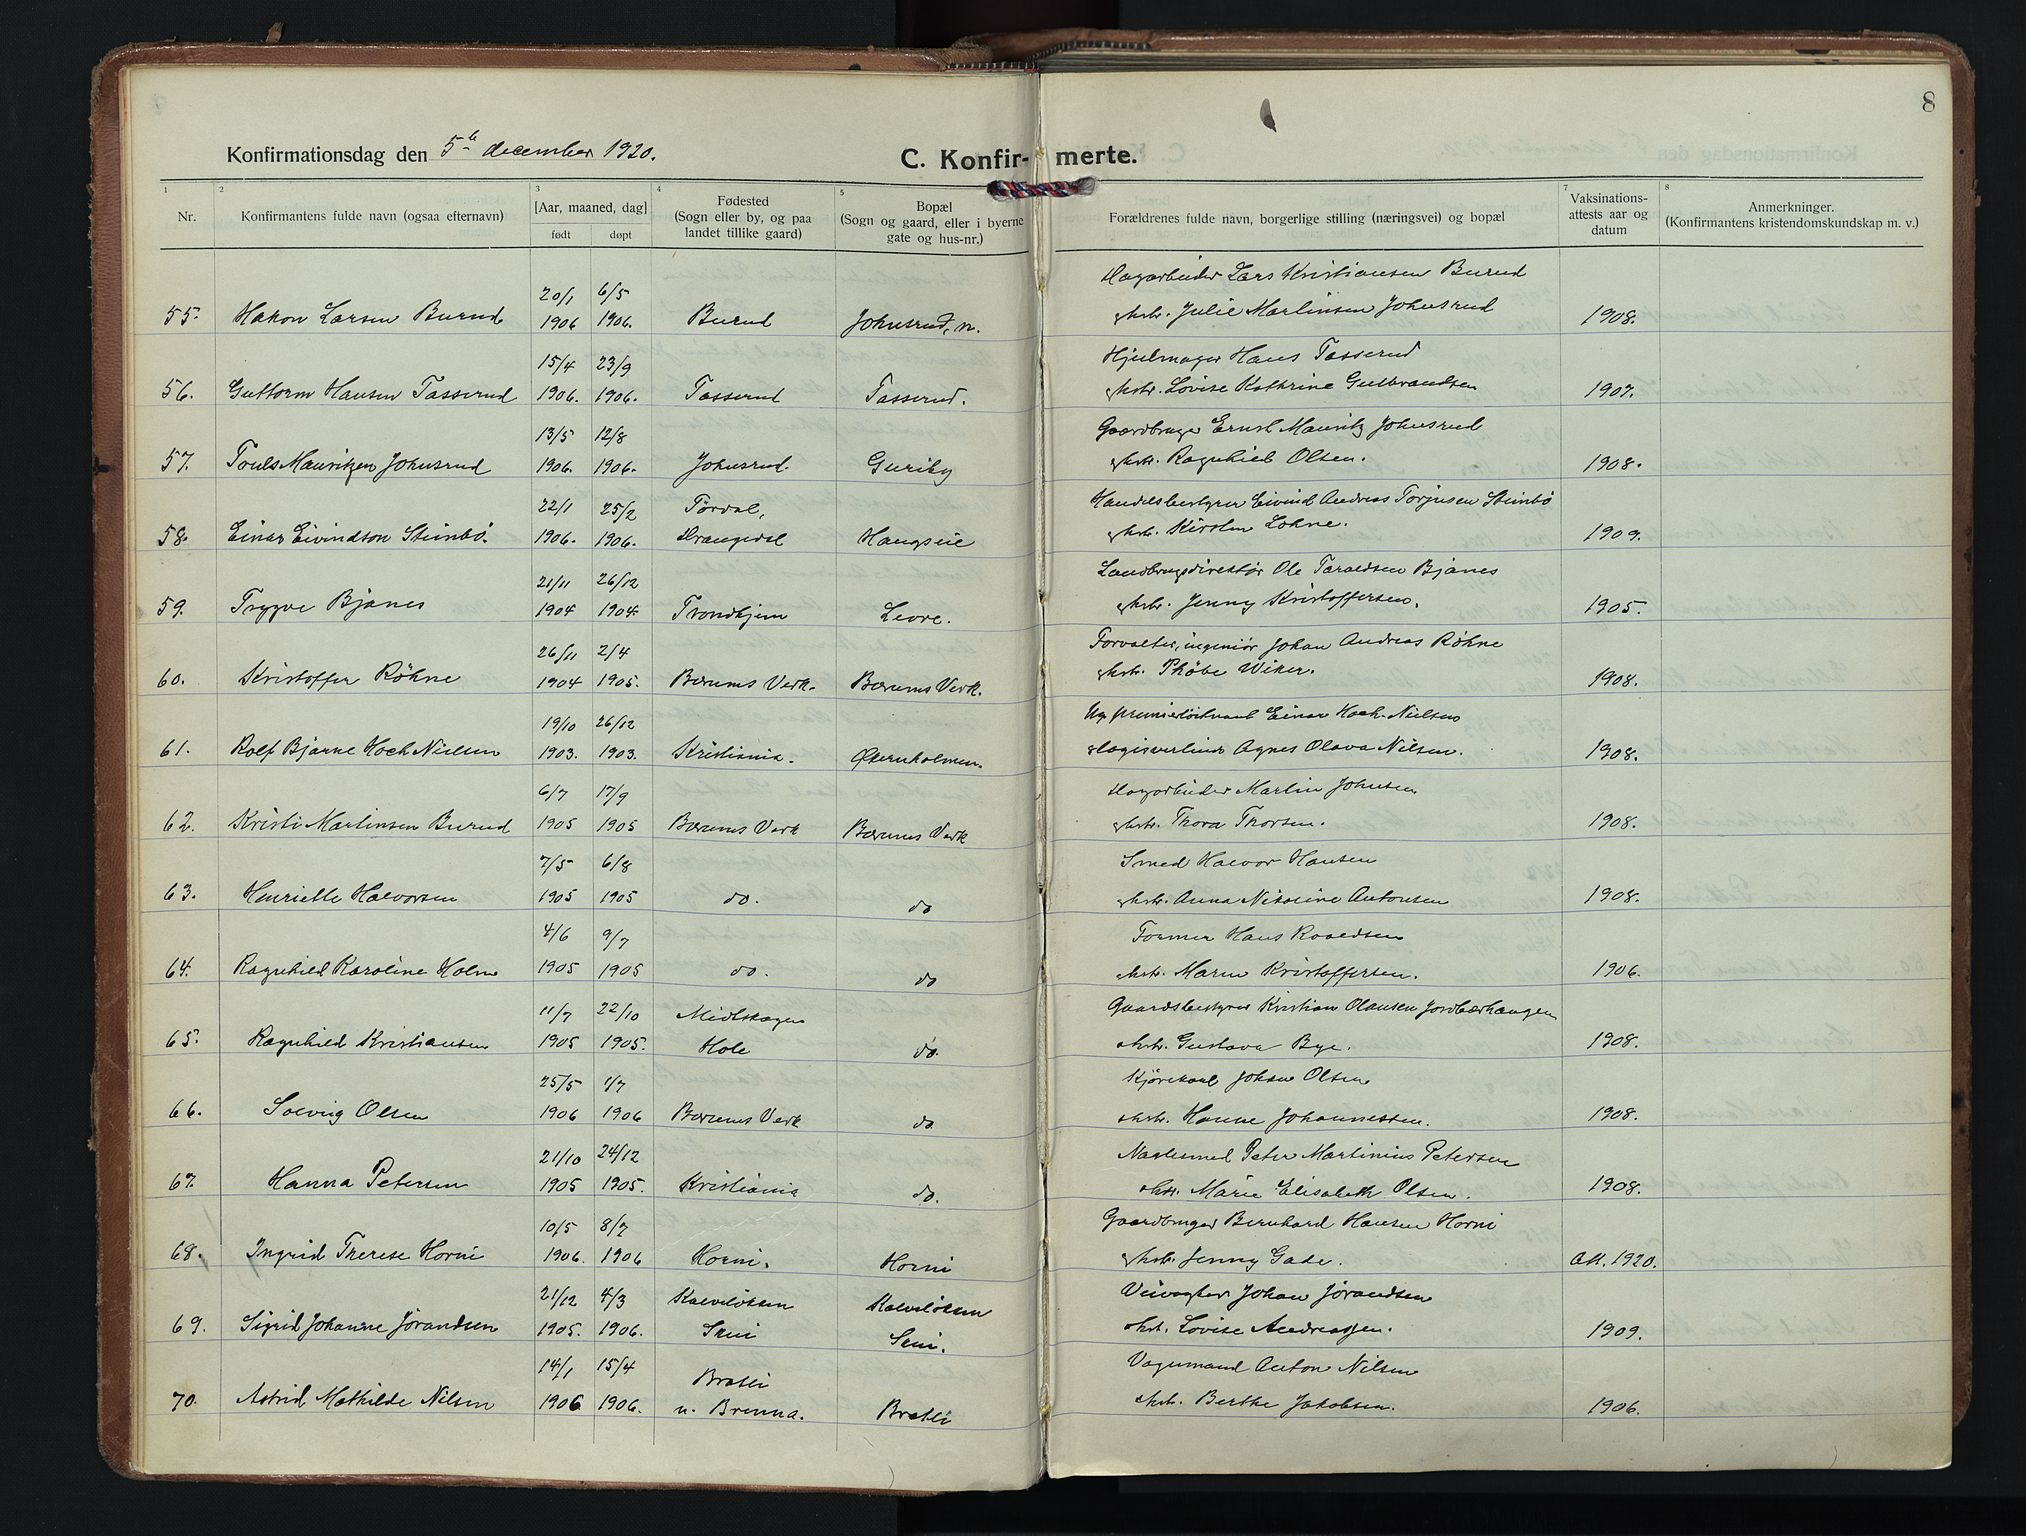 8
Konfirmationsdag den 5te december 1920.
C. Konfir- merte.
1 2 3 4 5 7 8
Nr.
Konfirmantens fulde navn (ogsaa efternavn)
[Aar, maaned, dag]
født døpt
Fødested
(Sogn eller by, og paa
landet tillike gaard)
Bopæl
(Sogn og gaard, eller i byerne
gate og hus-nr.)
Forældrenes fulde navn, borgerlige stilling (næringsvei) og bopæl
Vaksinations-
attests aar og
datum
Anmerkninger.
(Konfirmantens kristendomskundskap m. v.)
20/1 6/5 Dagarbeider Lars Kristiansen Burud
55. Hakon Larsen Burud 1906 1906. Burud Johnsrud, n. & hstr. Julie Martinsen Johnsrud 1908.
15/4 23/9 Hjulmager Hans Tasserud
56. Guttorm Hansen Tasserud 1906. 1906. Tasserud Tasserud. & hstr. Lovise Kathrine Gulbrandsen 1907.
13/5 12/8 Gaardbruger Ernst Mauritz Johnsrud
57. Mauritzen Johnsrud 1906. 1906. Johnsrud. Guriby & hstr. Ragnhild Olsen. 1908.
22/1 25/2 Tørdal, Handelsbestyrer Eivind Andreas Torjusen Steinbø
58. Einar Eivindson Steinbø. 1906. 1906. Drangedal & hstr. Kirsten Lohne. 1909.
21/11 26/12 Landbrugsdirektør Ole Taraldsen Bjanes
59. Trygve Bjanes 1904 1904. Trondhjem & hstr. Jenny Kristoffersen. 1905.
26/11 2/4 Forvalter, ingeniør Johan Andreas Røhne
60. Kristoffer Røhne 1904 1905. Bærums Verk. Bærums Verk. & hstr. Phøbe Wiker. 1908.
19/10 26/12 Ug. premierløitnant Einar Hoch-Nielsen
61. Rolf Bjarne Hoch Nielsen 1903. 1903. Kristiania. Østernholmen. Agnes Olava Nilsen. 1908.
6/7 17/9 Dagarbeider Martin Johnsen
62. Kristi Martinsen Burud 1905 1905 Bærums Verk Bærums Verk & hstr. Thora Thorsen. 1908.
7/5 6/8 Smed Halvor Hansen
63. Henriette Halvorsen 1905 1905 do. do & hstr. Anna Nikoline Antonsen 1908.
4/6 9/7 Former Hans Roaldsen
64. Ragnhild Karoline Holm 1905 1905 do. do & hstr. Maren Kristoffersen. 1906.
11/7 22/10 Midtskogen Gaardsbestyrer Kristian Olausen Jordbærhaugen
65. Ragnhild Kristiansen 1905 1905. Hole do. & hstr. Gustava Bye. 1908.
25/5 1/7 Kjørekarl Johan Olsen
66. Solveig Olsen 1906 1906 Bærums Verk do & hstr. Hanne Johannessen. 1908.
21/10 24/12 Naglesmed Peter Martinius Petersen
67. Hanna Petersen 1905 1905. Kristiania do. & hstr. Marie Elisabeth Olsen. 1908.
10/5 8/7 Gaardbruger Bernhard Hansen Horni
68. Ingrid Therese Horni 1906. 1906 Horni. Horni & hstr. Jenny Gade. Att. 1920.
21/12 4/3 Kalveløkken Kalveløkken Veivogter Johan Jørandsen
69. Sigrid Johanne Jørandsen 1905. 1906. Skui Skui. & hstr. Lovise Andreassen. 1909.
14/1 15/4 Bratli Vognmand Anton Nilsen
70. Astrid Mathilde Nilsen 1906 1906. u. Brenna. Bratli & hstr. Berthe Jakobsen. 1906.